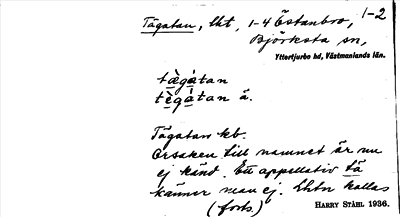 Tägatan, lht, 1-4 Östanbro, 1-2
Björksta sn,
Yttertjurbo hd, Västmanlands län.
tä̀gátan
tè̀gátan å.
Tägatan kb.
Orsaken till namnet är nu
ej känd. Ett appellativ tä
känner man ej. Lhtn kallas
(forts.)
HARRY STÅHL 1936.